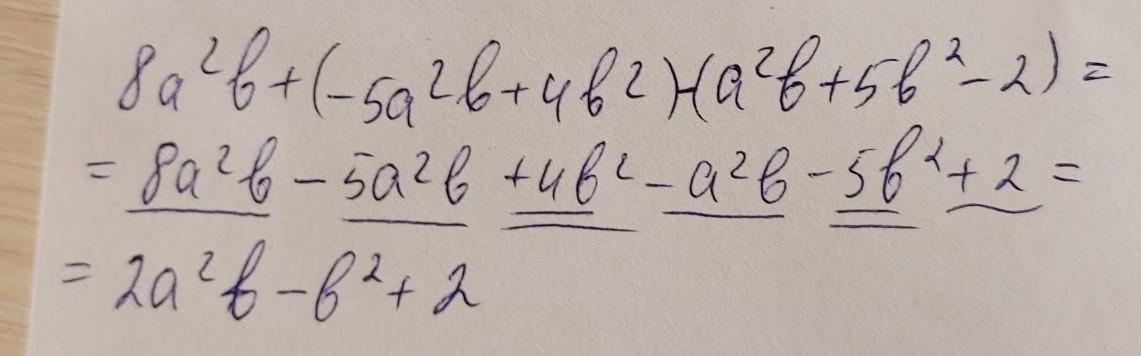 8a²b+(-5a²b+4b²)-(a²b+5b²-2)=
=8a²b-5a²b+4b²-a²b-5b²+2=
=2a²b-b²+2